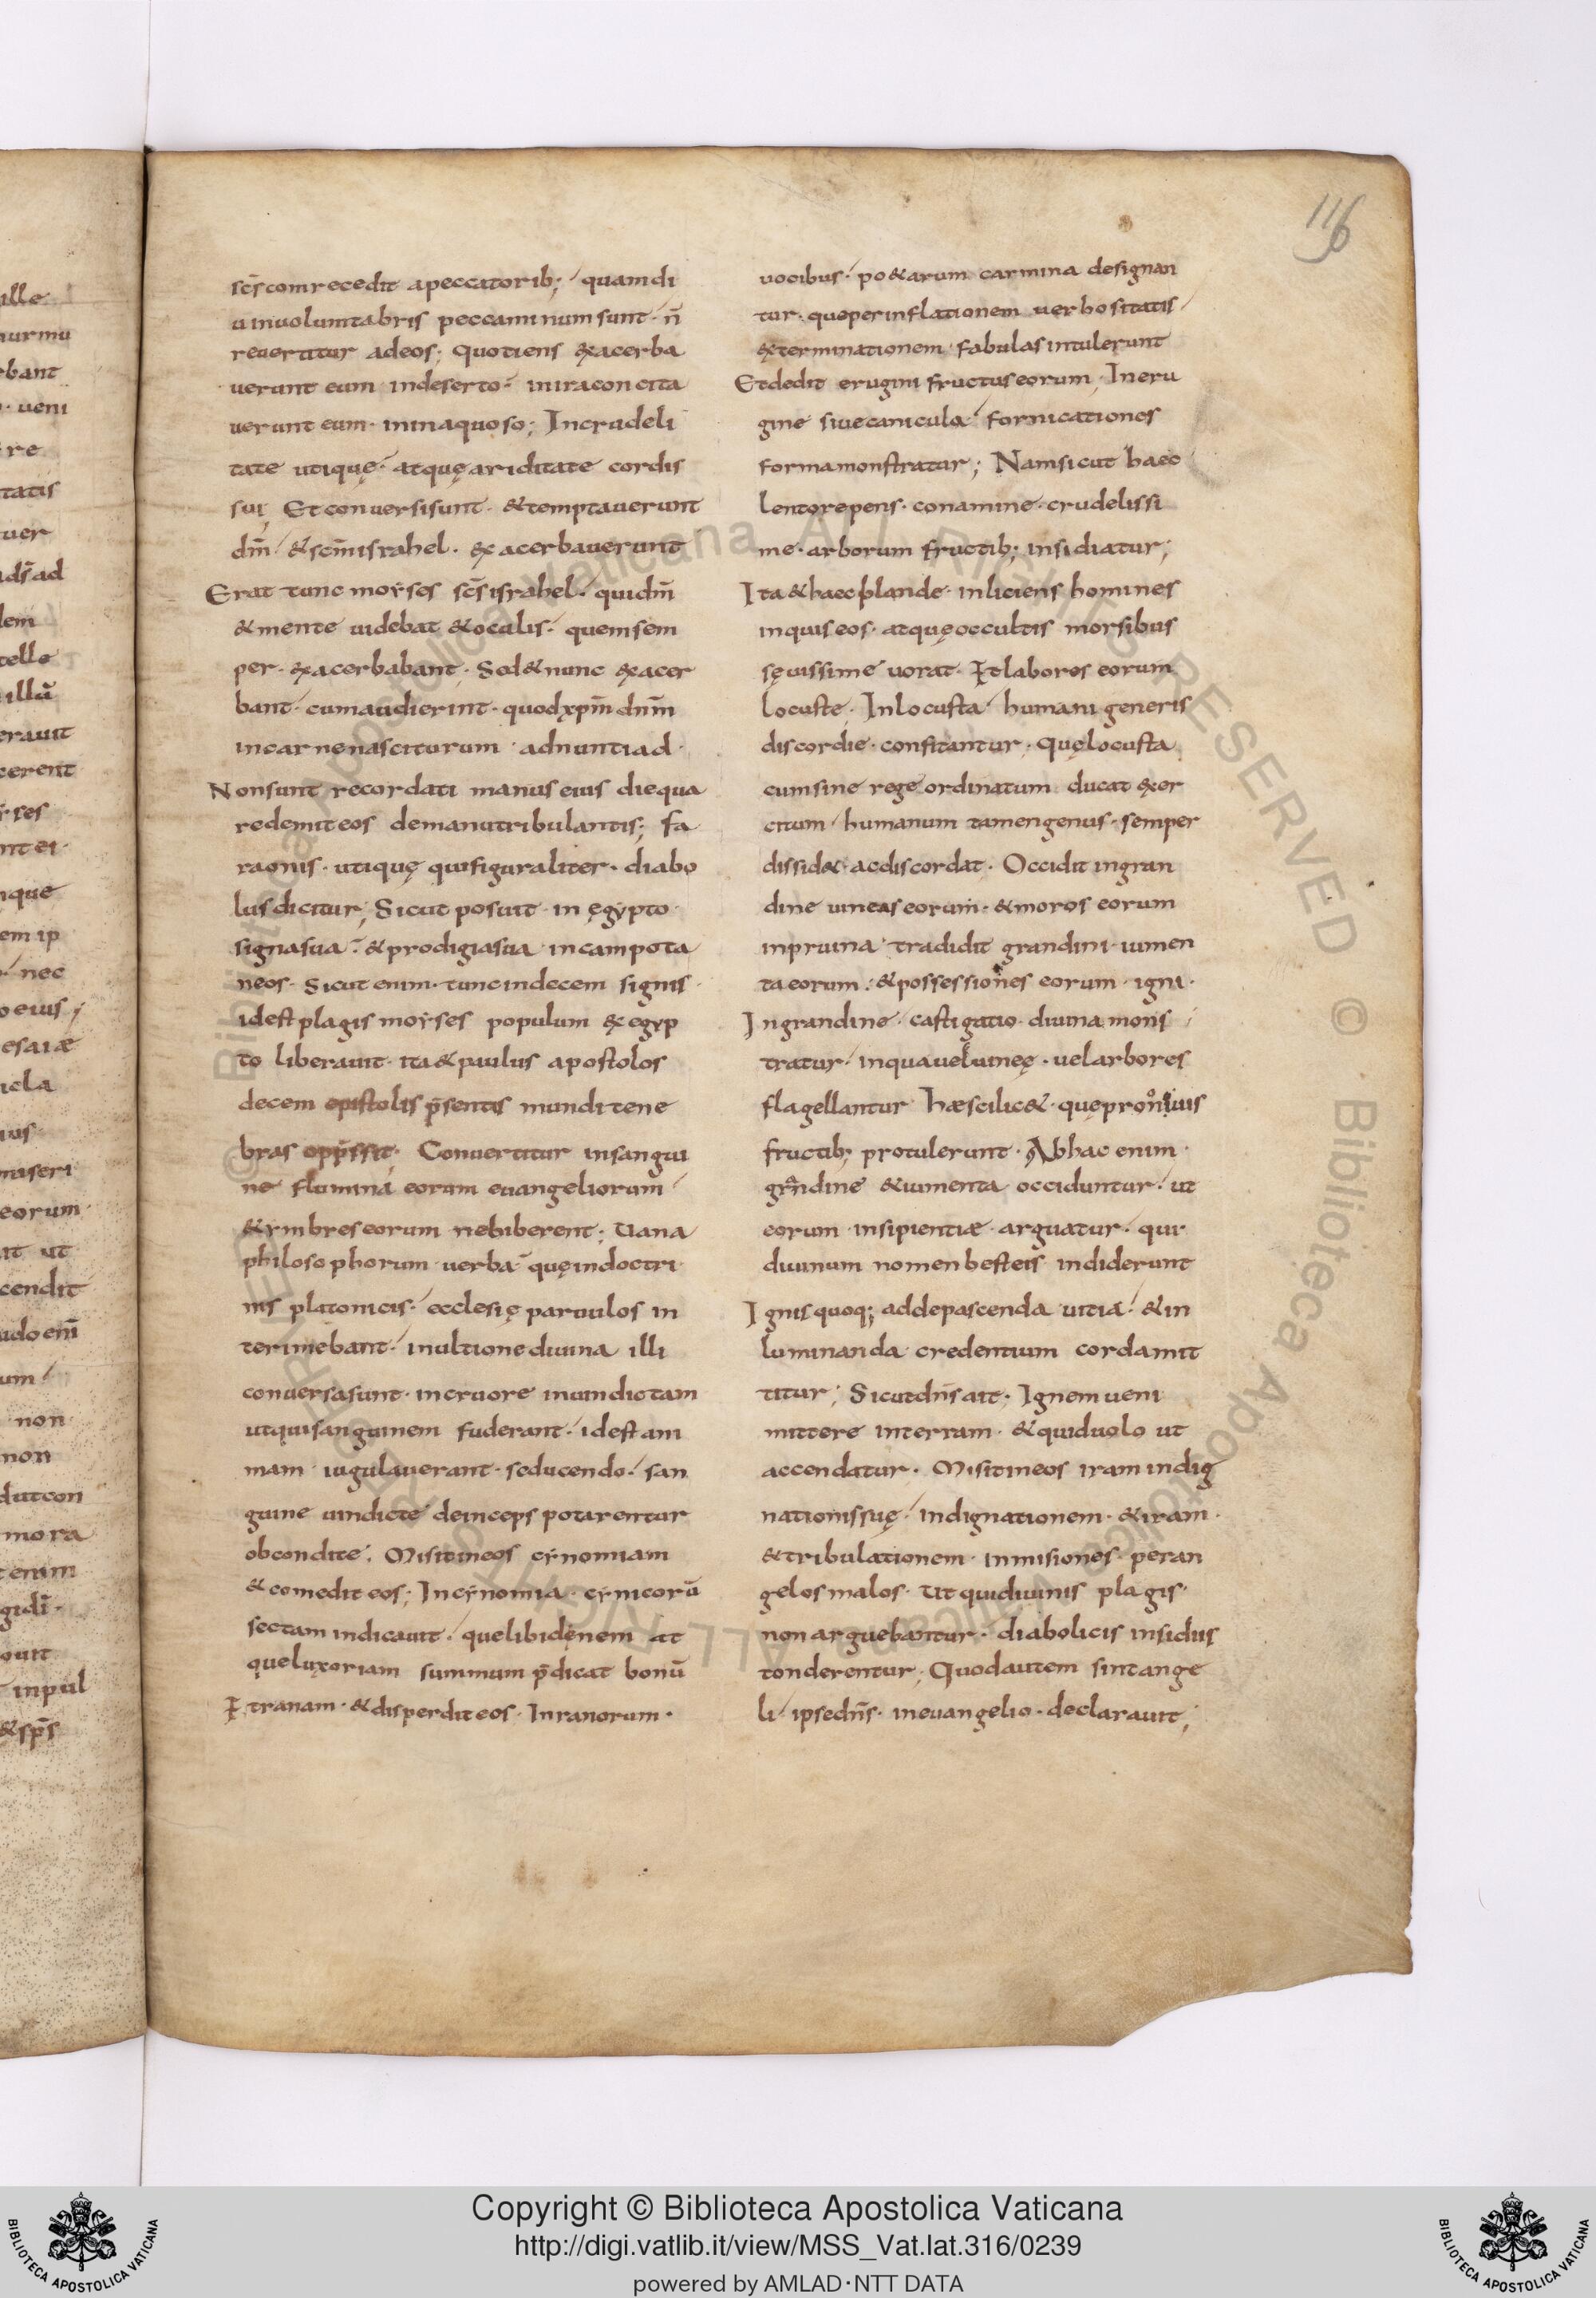 116
sc̄s com recedit a peccatorib; quamdi
u in volumtabris peccaminum sunt · n̄
revertitur ad eos; Quotiens exacerba
verunt eum in deserto · in ira concita
verunt eum · in inaquoso; In crudeli
tate utique · atque ariditate cordis
sui; Et conversi sunt · & temptaverunt
dm̄ & scm̄ israhel · exacerbaverunt
Erat tunc moyses sc̄s israhel · qui dm̄
& mente videbat & oculis · quem sem
per · exacerbabant · Sed & nunc exacer
bant · cum audierint · quod xpm̄ dnm̄
in carne nasciturum adnuntiad ·
Non sunt recordati manus eius die qua
redemit eos de manu tribulantis; Fa
raonis · utique qui figuraliter · diabo
lus dicitur; Sicut posuit in ęgypto
signa sua · & prodigia sua in campo ta
neos · Sicut enim · tunc in decem signis ·
id est plagis moyses populum ex egyp
to liberavit · ita & paulus apostolos
decem epistolis p̄sentis mundi tene
bras opp̄ssit; Convertitur in sangui
ne flumina eorum evangeliorum
& ymbres eorum ne biberent; Vana
philosophorum verba quę in doctri
nis platonicis · ecclesię parvulos in
terimebant · in ultione divina illi
conversa sunt · in cruore in vindictam
ut qui sanguinem fuderant · id est ani
mam iugulaverant · seducendo · san
guine vindicte deinceps potarentur
ob condite · Misit in eos cynomiam
& comedit eos; In cynomia · cynicorū
sectam indicavit · que libidenem at
que luxoriam summum p̄dicat bonū
Et ranam · & disperdit eos · In ranorum ·
vocibus · po&arum carmina designan
tur · que per inflationem verbositatis
exterminationem fabulas intulerunt
Et dedit erugini fructus eorum; In eru
gine sive canicula fornicationes
forma monstratur; Nam sicut haec
lento repens · conamine · crudelissi
me · arborum fructib; insidiatur;
Ita & haec blande · inliciens homines
inquis eos · atque occultis morsibus
sęvissime vorat · Et labores eorum
locuste · In locusta humani generis
discordie · confitantur · Quę locusta
cum sine rege ordinatum ducat exer
citum humanum tamen genus · semper
dissid& · ac discordat · Occidit in gran
dine vineas eorum · & moros eorum
in pruina tradidit grandini · iumen
ta eorum · & possessiones eorum · igni ·
In grandine · castigatio divina mons
tratur · in qua vel vineę · vel arbores
flagellantur hæ scilic& · quę pro noxiuis
fructib; protulerunt · Ab hac enim ·
grandine & iumenta occiduntur · ut
eorum insipientiæ arguatur · qui
divinum nomen besteis indiderunt
Ignis quoq; ad depascenda vitia · & in
luminanda credentium corda mit
titur; Sicut dn̄s ait · Ignem veni
mittere in terram · & quid volo ut
accendatur · Misit in eos iram indig
nationis suę · indignationem · & iram ·
& tribulationem · inmisiones · per an
gelos malos · Ut qui divinis plagis ·
non arguebantur · diabolicis insidiis
tonderentur; Quod autem sint ange
li · ipse dn̄s · in evangelio · declaravit;
Copyright © Biblioteca Apostolica Vaticana
http://digi.vatlib.it/view/MSS_Vat.lat.316/0239
powered by AMLAD·NTT DATA
BIBLIOTECA APOSTOLICA VATICANA
BIBLIOTECA APOSTOLICA VATICANA